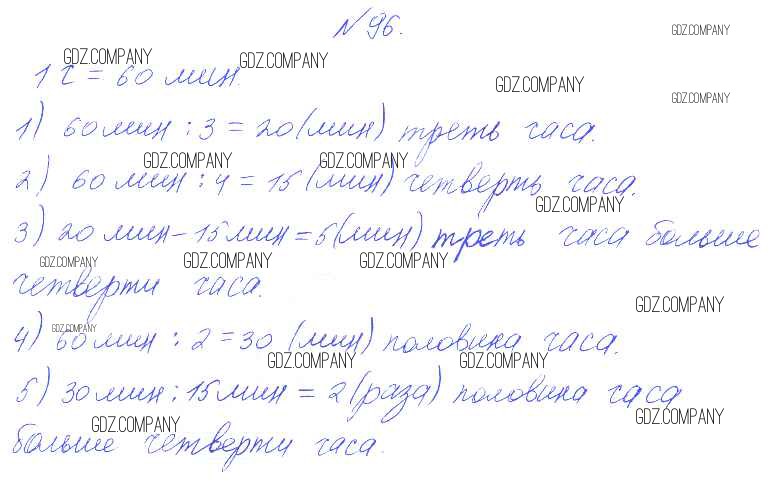 №96.
GDZ.COMPANY
GDZ.COMPANY GDZ.COMPANY
1 ч = 60 мин.
GDZ.COMPANY
GDZ.COMPANY
1) 60 мин : 3 = 20 (мин) треть часа.
GDZ.COMPANY GDZ.COMPANY
2) 60 мин : 4 = 15 (мин) четверть часа.
GDZ.COMPANY
3) 20 мин - 15 мин = 5 (мин) треть часа больше
GDZ.COMPANY GDZ.COMPANY GDZ.COMPANY
четверти часа.
GDZ.COMPANY
GDZ.COMPANY
4) 60 мин : 2 = 30 (мин) половина часа.
GDZ.COMPANY GDZ.COMPANY
5) 30 мин : 15 мин = 2 (раза) половина часа
GDZ.COMPANY GDZ.COMPANY
больше четверти часа.